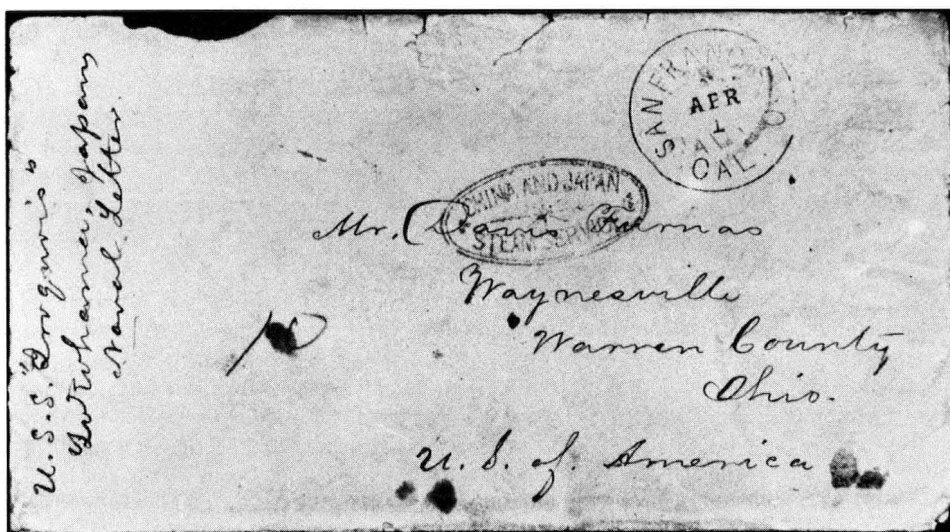 U.S.S. "Iroquois"
Yokohama, Japan
Naval Letter
SAN FRANCISCO
APR
1
CAL.
CHINA AND JAPAN
STEAM SERVICE
Mr. Davis Furnas
Waynesville
Warren County
Ohio.
U. S. of America
10